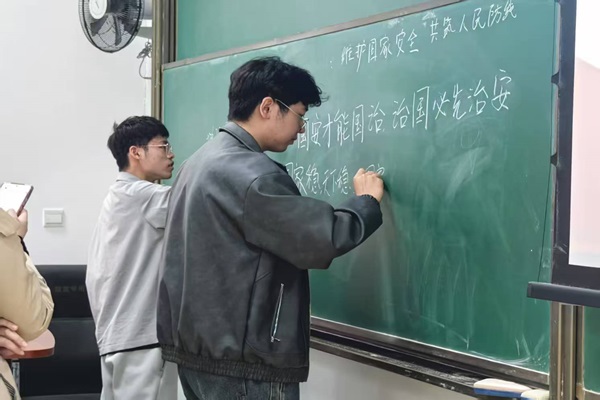 维护国家安全 共筑人民防线
国安才能国治,治国必先治安
国家稳,行稳